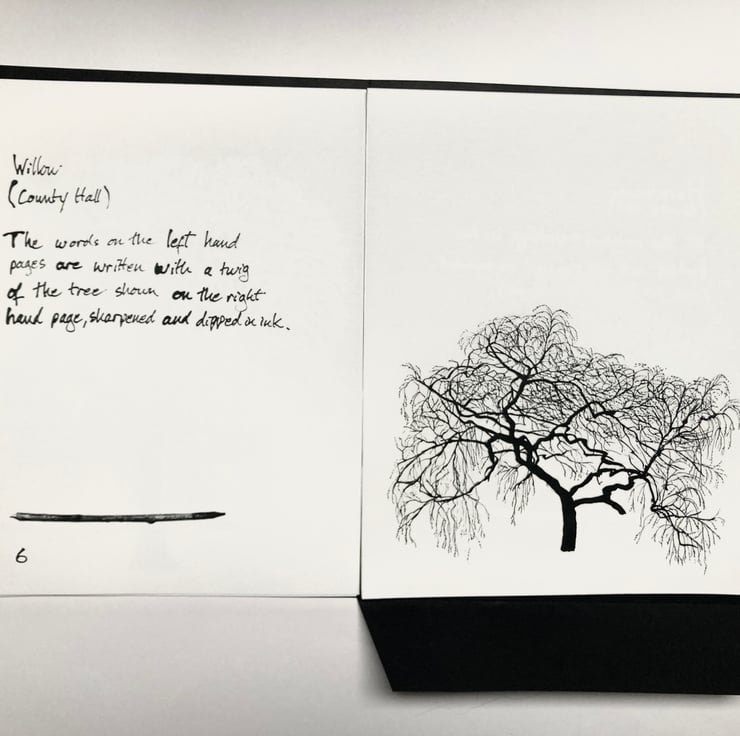 Willow
(County Hall)
The words on the left hand
pages are written with a twig
of the tree shown on the right
hand page, sharpened and dipped in ink.
6